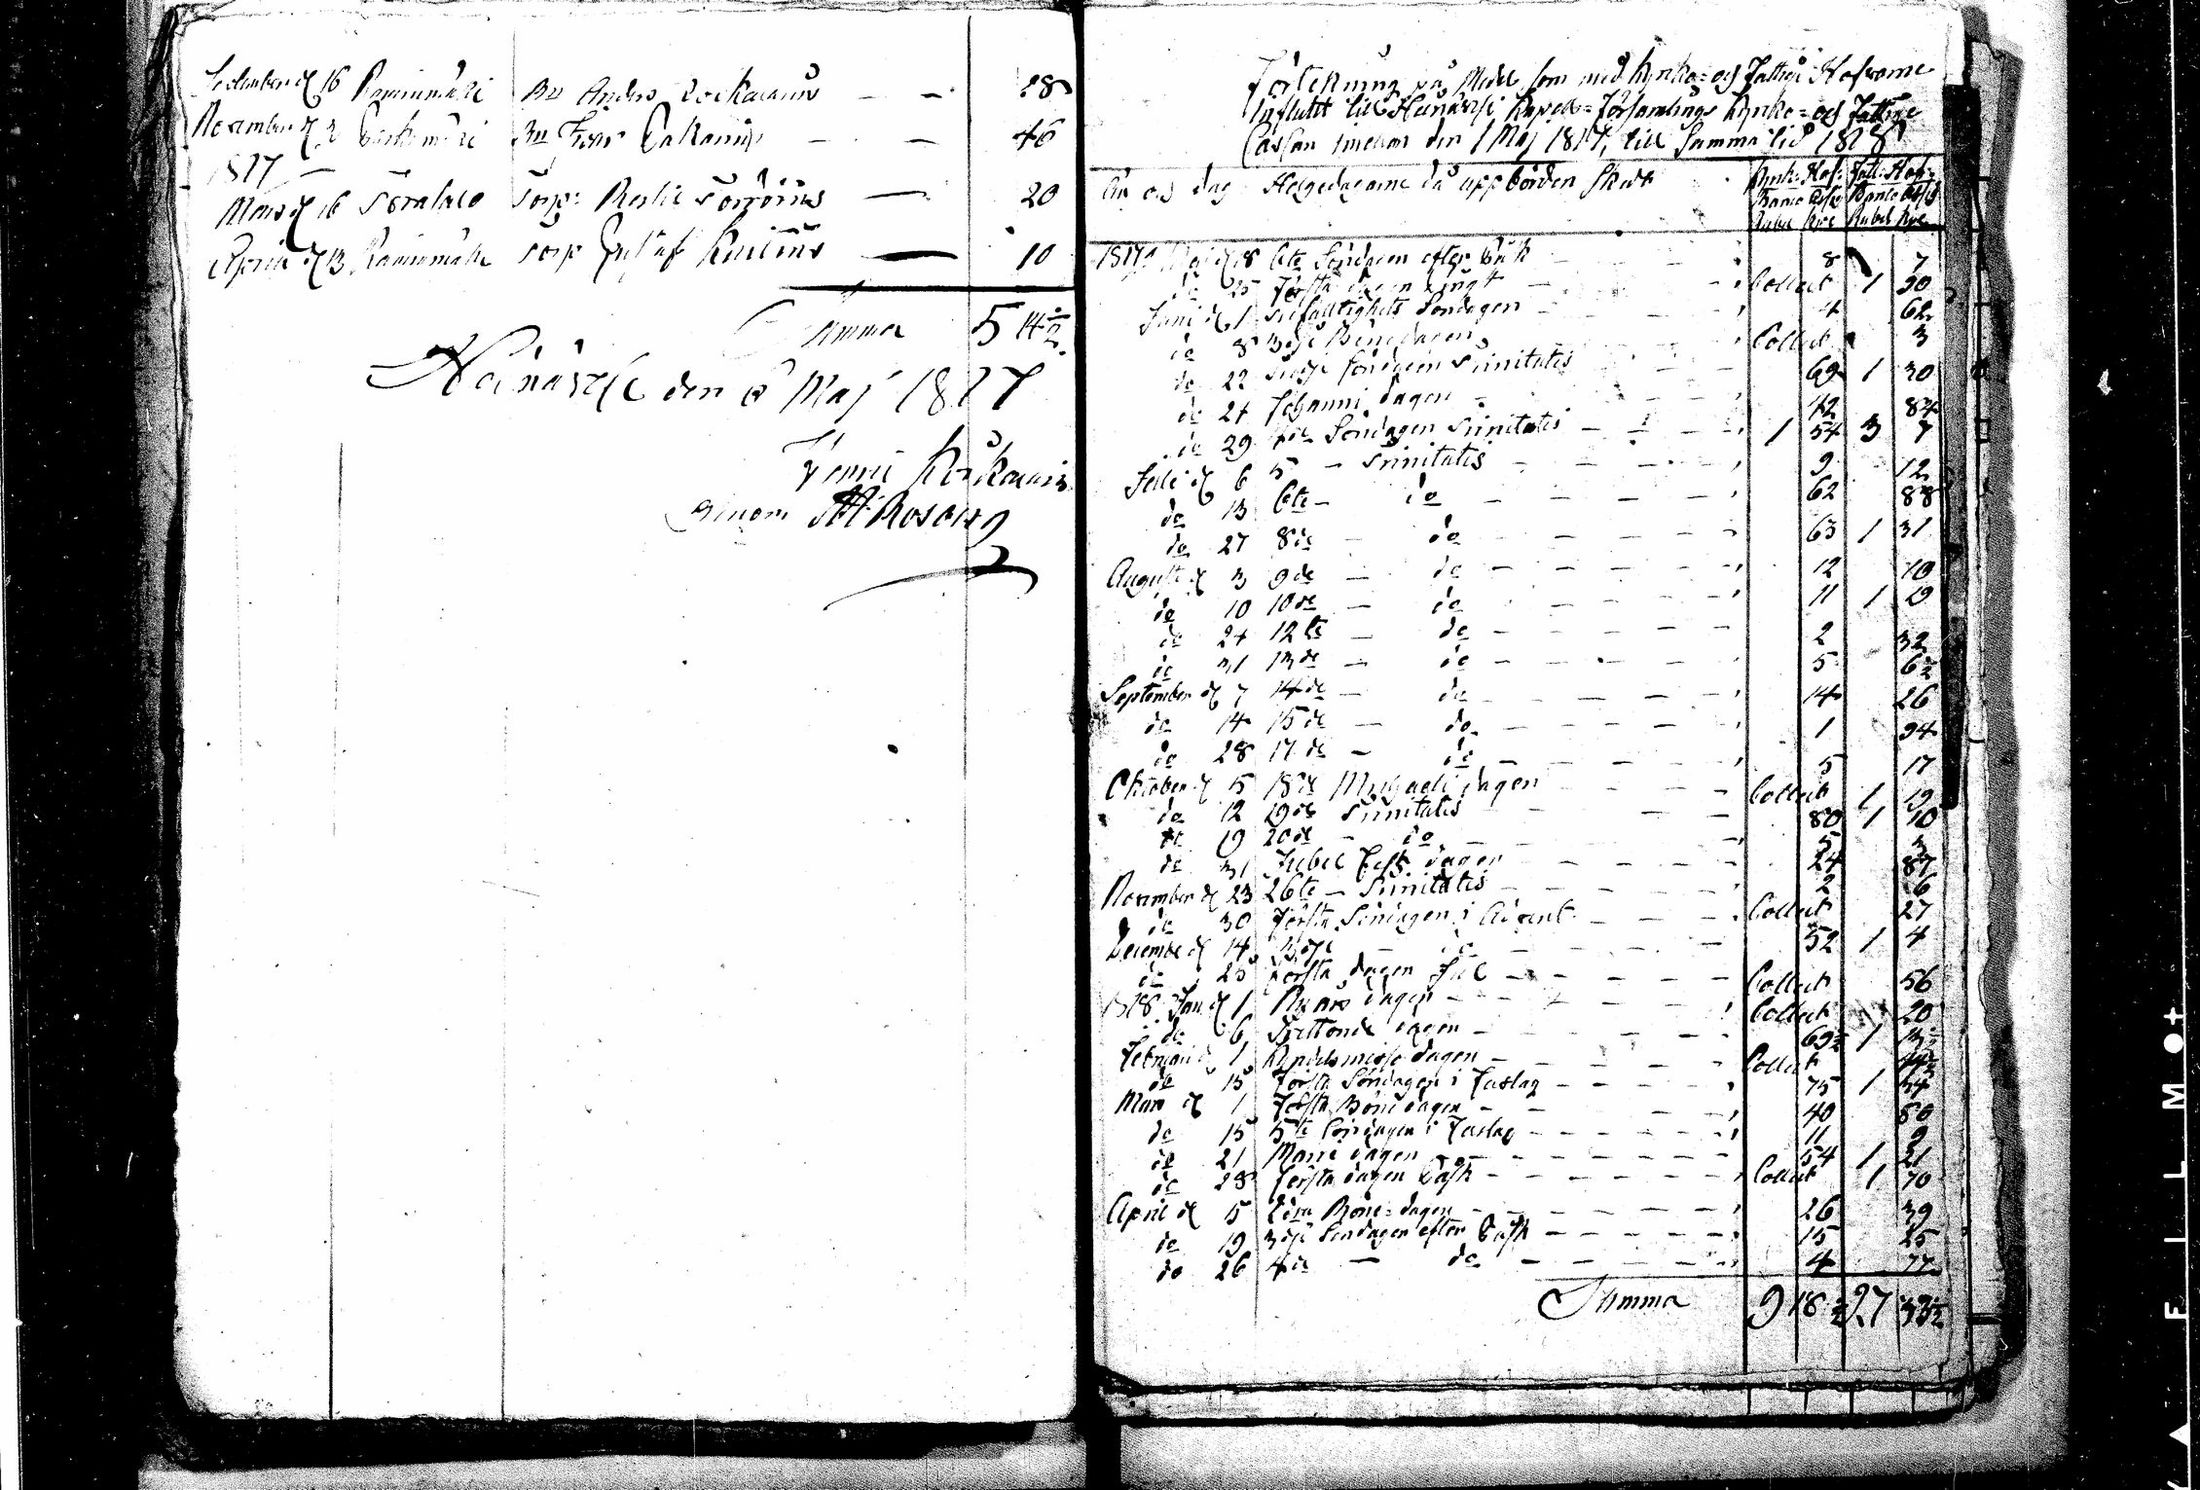 September d 16 Raniemäki Bn Anders — — 28
November d 2 Bn — — 46
1817
Mars d 16 — 20
Aprill d 13 Raniemäki Gustaf — 10
Summa 5 14½
den 6 Maj 1817
Henric
genom Rosberg
Förtekning på Medel som med Kyrko= och Fattig Hofvarne
Influtit till Kapell=Församlings Kyrko= och Fattig
Cassan imellan den 1 Maj 1817, till Samma tid 1818
År och dag Helgedagarne då uppbörden Skedt Kyrk: Hof: Fatt: Hof:
Banco Ass: Banco Ass:
Rubel Kop Rubel Kop
1817 Maj d 18 6te Söndagen efter Påsk 8 7
do 25 Första dagen Pingst Collect 1 30
Juni d 1 Trefaldighets Söndagen 4 62
do 8 3dje Bönedagen Collect 3
do 22 3dje Söndagen Trinitatis 69 1 30
do 24 Johanni dagen 42 84
do 29 4de Söndagen Trinitatis 1 54 3 7
Julii d 6 5 — Trinitatis 9 12
do 13 6te — do 62 88
do 27 8de — do 63 1 31
Augusti d 3 9de — do 12 10
do 10 10de — do 11 1 29
do 24 12te — do 2 32
do 31 13de — do 5 6½
September d 7 14de — do 14 26
do 14 15de — do 1 94
do 28 17de — do 5 17
Oktober d 5 18de Michaeli dagen Collect 1 19
do 12 19de Trinitatis 80 1 10
do 19 20de — do 5 3
do 31 Jubel Fest dagen 24 87
November d 23 26te — Trinitatis 2 6
do 30 Första Söndagen i Advent Collect 27
December d 14 3dje — do 52 1 4
do 25 Första dagen Jul Collect 56
1818 Jan d 1 Nyårs dagen Collect 20
do 6 Trettonde dagen 69½ 1
Februari d 1 Kyndelsmesso dagen Collect
do 15 Första Söndagen i Fastlag 75 1 34
Mars d 1 Första Böne dagen 40 80
do 15 5te Söndagen i Fastlag 11 9
do 21 Marie dagen 54 1 21
do 28 Första dagen Påsk Collect 1 70
April d 5 2dra Böne=dagen 26 39
do 19 3dje Söndagen efter Påsk 15 25
do 26 4de — do 4 77
Summa 9 18½ 27 33½